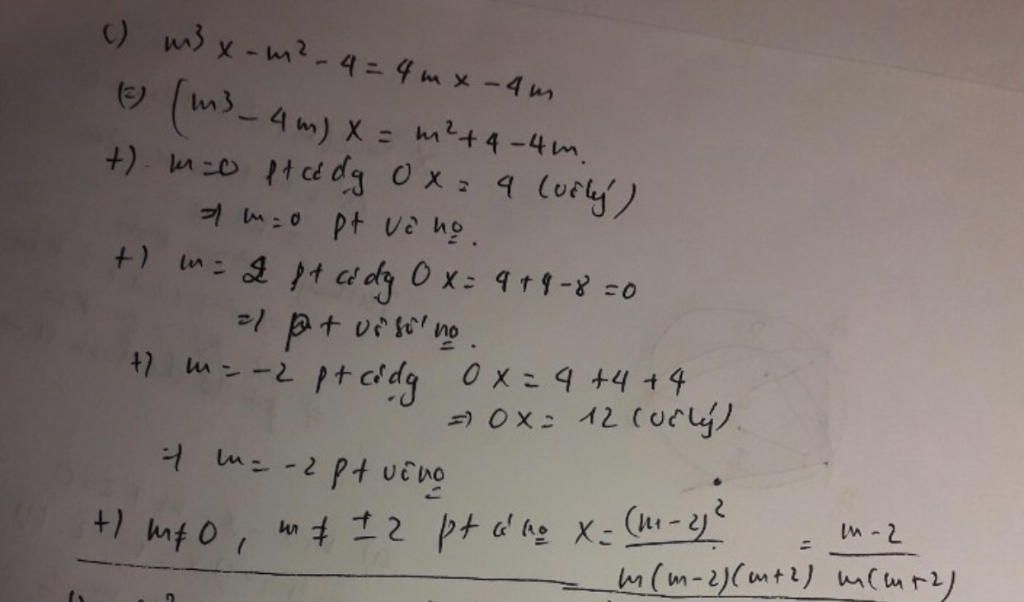 c) m³x - m² - 4 = 4mx - 4m
(=) (m³ - 4m) x = m² + 4 - 4m.
+). m=0 pt có dg 0x = 4 (vô lý)
=> m=0 pt vô no.
+) m = 2 pt có dg 0x = 4+4-8 = 0
=> pt vô số no.
+) m = -2 pt có dg 0x = 4 + 4 + 4
=> 0x = 12 (vô lý)
=> m = -2 pt vô no
+) m≠0, m ≠ ±2 pt có no x = (m-2)² / m(m-2)(m+2) = m-2 / m(m+2)